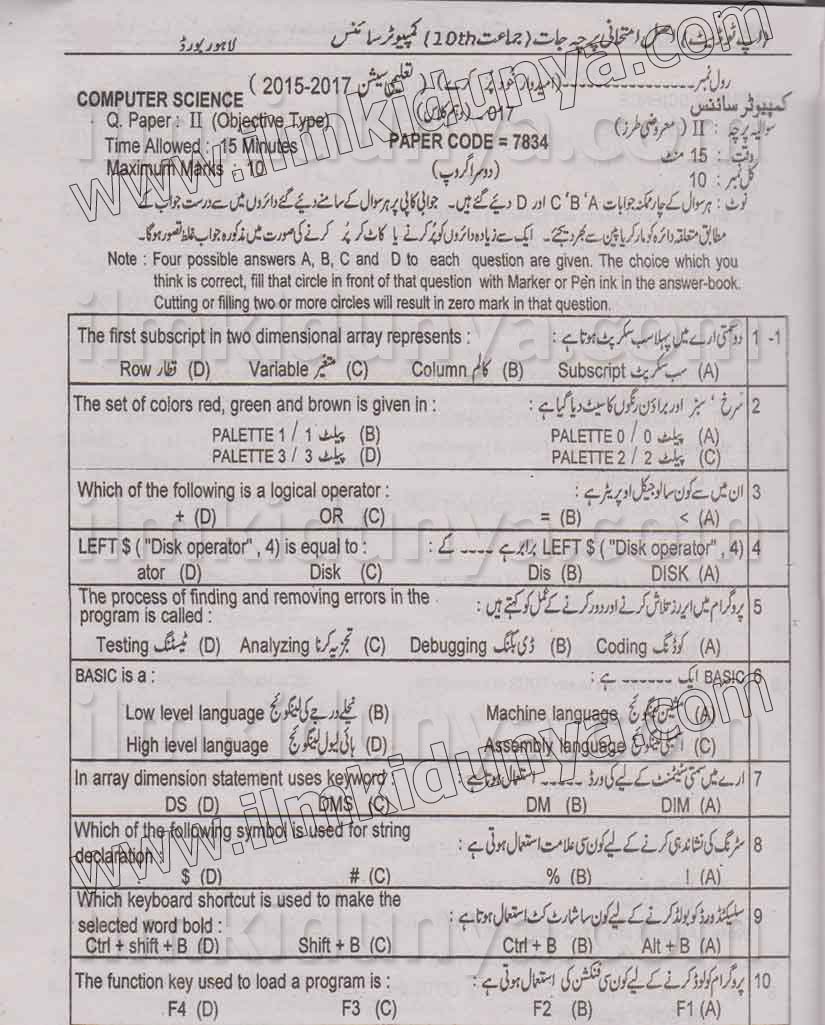 (اپ ٹو ڈیٹ) اصل امتحانی پرچہ جات (جماعت 10th) کمپیوٹر سائنس لاہور بورڈ
رول نمبر ------------------ (امیدوار خود پُر کرے) (تعلیمی سیشن 2015-2017)
COMPUTER SCIENCE کمپیوٹر سائنس
Q. Paper : II (Objective Type) 017 سوالیہ پرچہ : II (معروضی طرز)
Time Allowed : 15 Minutes PAPER CODE = 7834 وقت : 15 منٹ
Maximum Marks : 10 (دوسرا گروپ) کل نمبر : 10
نوٹ : ہر سوال کے چار ممکنہ جوابات A ' B ' C اور D دیئے گئے ہیں۔ جوابی کاپی پر ہر سوال کے سامنے دیئے گئے دائروں میں سے درست جواب کے
مطابق متعلقہ دائرہ کو مارکر یا پین سے بھر دیجئے۔ ایک سے زیادہ دائروں کو پُر کرنے یا کاٹ کر پُر کرنے کی صورت میں مذکورہ جواب غلط تصور ہوگا۔
Note : Four possible answers A, B, C and D to each question are given. The choice which you
think is correct, fill that circle in front of that question with Marker or Pen ink in the answer-book.
Cutting or filling two or more circles will result in zero mark in that question.
The first subscript in two dimensional array represents : دو سمتی ارے میں پہلا سب سکرپٹ ہوتا ہے : 1 -1
Row قطار (D) Variable متغیر (C) Column کالم (B) Subscript سب سکرپٹ (A)
The set of colors red, green and brown is given in : سُرخ ' سبز اور براؤن رنگوں کا سیٹ دیا گیا ہے : 2
PALETTE 1 / 1 پیلٹ (B) PALETTE 0 / 0 پیلٹ (A)
PALETTE 3 / 3 پیلٹ (D) PALETTE 2 / 2 پیلٹ (C)
Which of the following is a logical operator : ان میں سے کون سا لوجیکل اوپریٹر ہے : 3
+ (D) OR (C) = (B) < (A)
LEFT $ ( "Disk operator" , 4) is equal to : LEFT $ ( "Disk operator" , 4) برابر ہے ---- کے : 4
ator (D) Disk (C) Dis (B) DISK (A)
The process of finding and removing errors in the پروگرام میں ایررز تلاش کرنے اور دور کرنے کے عمل کو کہتے ہیں : 5
program is called :
Testing ٹیسٹنگ (D) Analyzing تجزیہ کرنا (C) Debugging ڈی بگنگ (B) Coding کوڈنگ (A)
BASIC is a : BASIC ایک ------ ہے : 6
Low level language نچلے درجے کی لینگوئج (B) Machine language مشین لینگوئج (A)
High level language ہائی لیول لینگوئج (D) Assembly language اسمبلی لینگوئج (C)
In array dimension statement uses keyword : ارے میں سمتی سٹیٹمنٹ کے لیے کی ورڈ ----- استعمال ہوتا ہے : 7
DS (D) DMS (C) DM (B) DIM (A)
Which of the following symbol is used for string سٹرنگ کی نشاندہی کرنے کے لیے کون سی علامت استعمال ہوتی ہے : 8
declaration :
$ (D) # (C) % (B) ! (A)
Which keyboard shortcut is used to make the سلیکٹڈ ورڈ کو بولڈ کرنے کے لیے کون سا شارٹ کٹ استعمال ہوتا ہے : 9
selected word bold :
Ctrl + shift + B (D) Shift + B (C) Ctrl + B (B) Alt + B (A)
The function key used to load a program is : پروگرام کو لوڈ کرنے کے لیے کون سی فنکشن کی استعمال ہوتی ہے : 10
F4 (D) F3 (C) F2 (B) F1 (A)
www.ilmkidunya.com
www.ilmkidunya.com
ilmkidunya.com
ilmkidunya.com
ilmkidunya.com
ilmkidunya.com
ilmkidunya.com